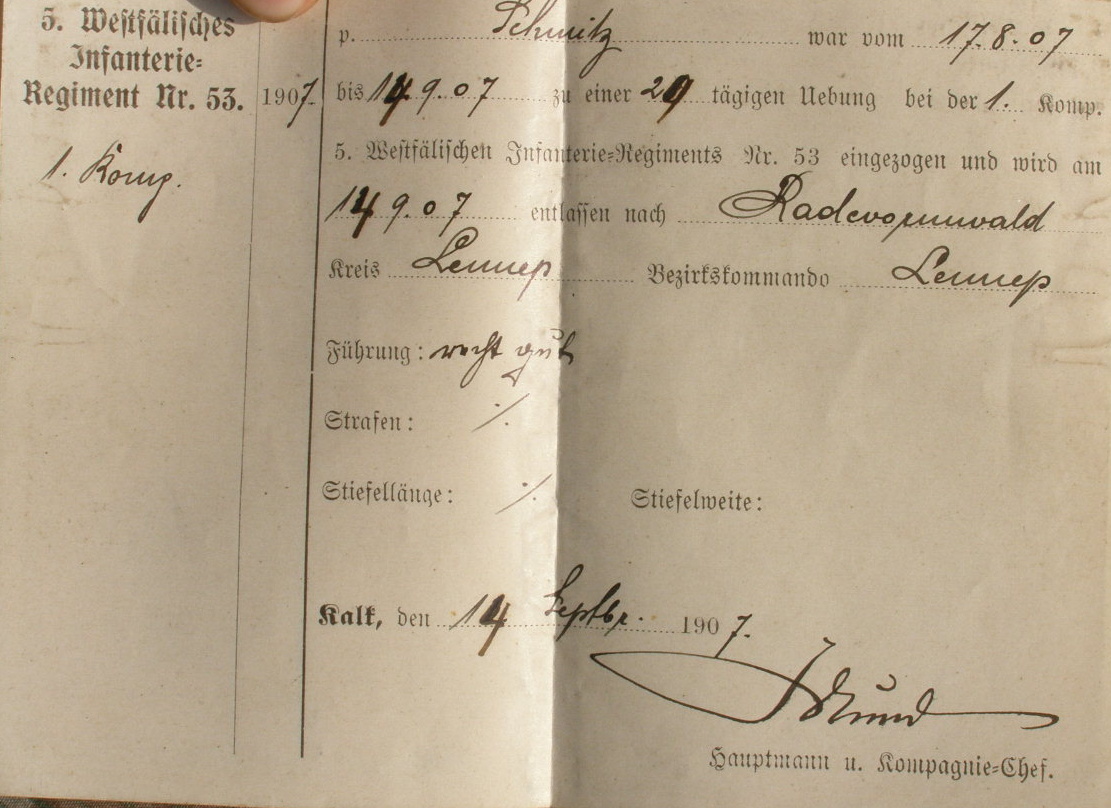 5. Westfälisches
Infanterie-
Regiment Nr. 53.
1. Komp.
1907.
p. Schmitz war vom 17.8.07
bis 14.9.07 zu einer 29 tägigen Uebung bei der 1. Komp.
5. Westfälischen Infanterie-Regiments Nr. 53 eingezogen und wird am
14.9.07 entlassen nach Radevormwald
Kreis Lennep Bezirkskommando Lennep
Führung: recht gut
Strafen: ⁒
Stiefellänge: ⁒ Stiefelweite:
Kalk, den 14 Septbr. 1907.
Hauptmann u. Kompagnie-Chef.